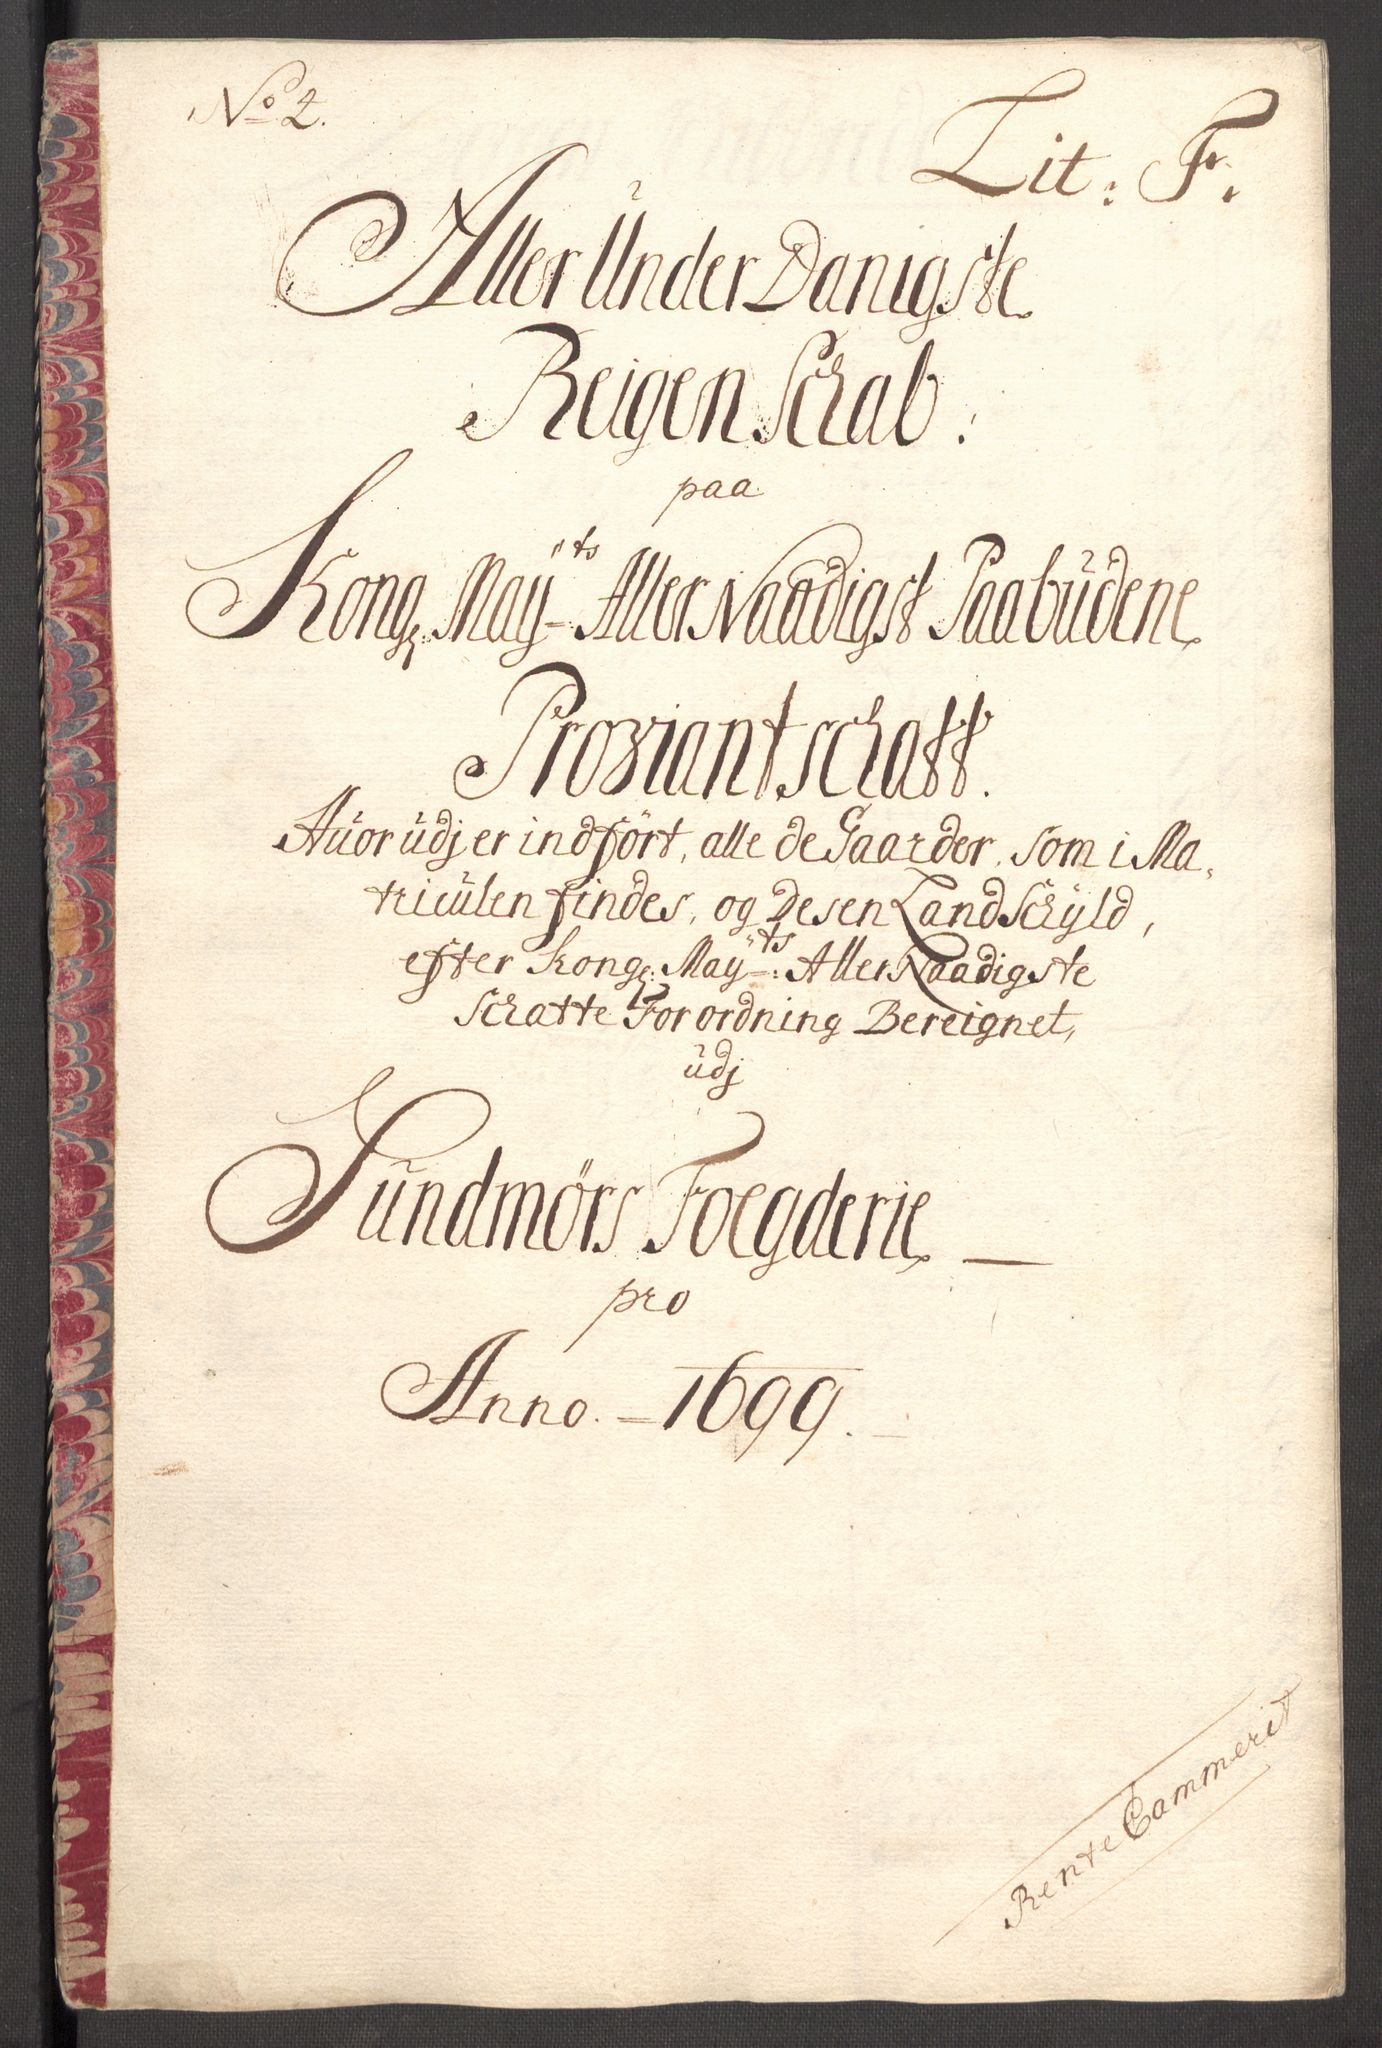 No 2.
Lit: F.
Aller Ünder Danigste
Reigen Schab:
paa
Kong: Maÿts Aller Naadigst Paabüdene
Proviantschatt.
Huor üdj er indført, alle de Gaarder, som i Ma,
triculen findes, og Desen Land Schyld,
efter Kong: Maÿts: Aller Naadigste
Schatte Forordning Bereignet,
üdj
Sündmörs Foegderie —
pro
Anno. 1699.
Rente Cammerit